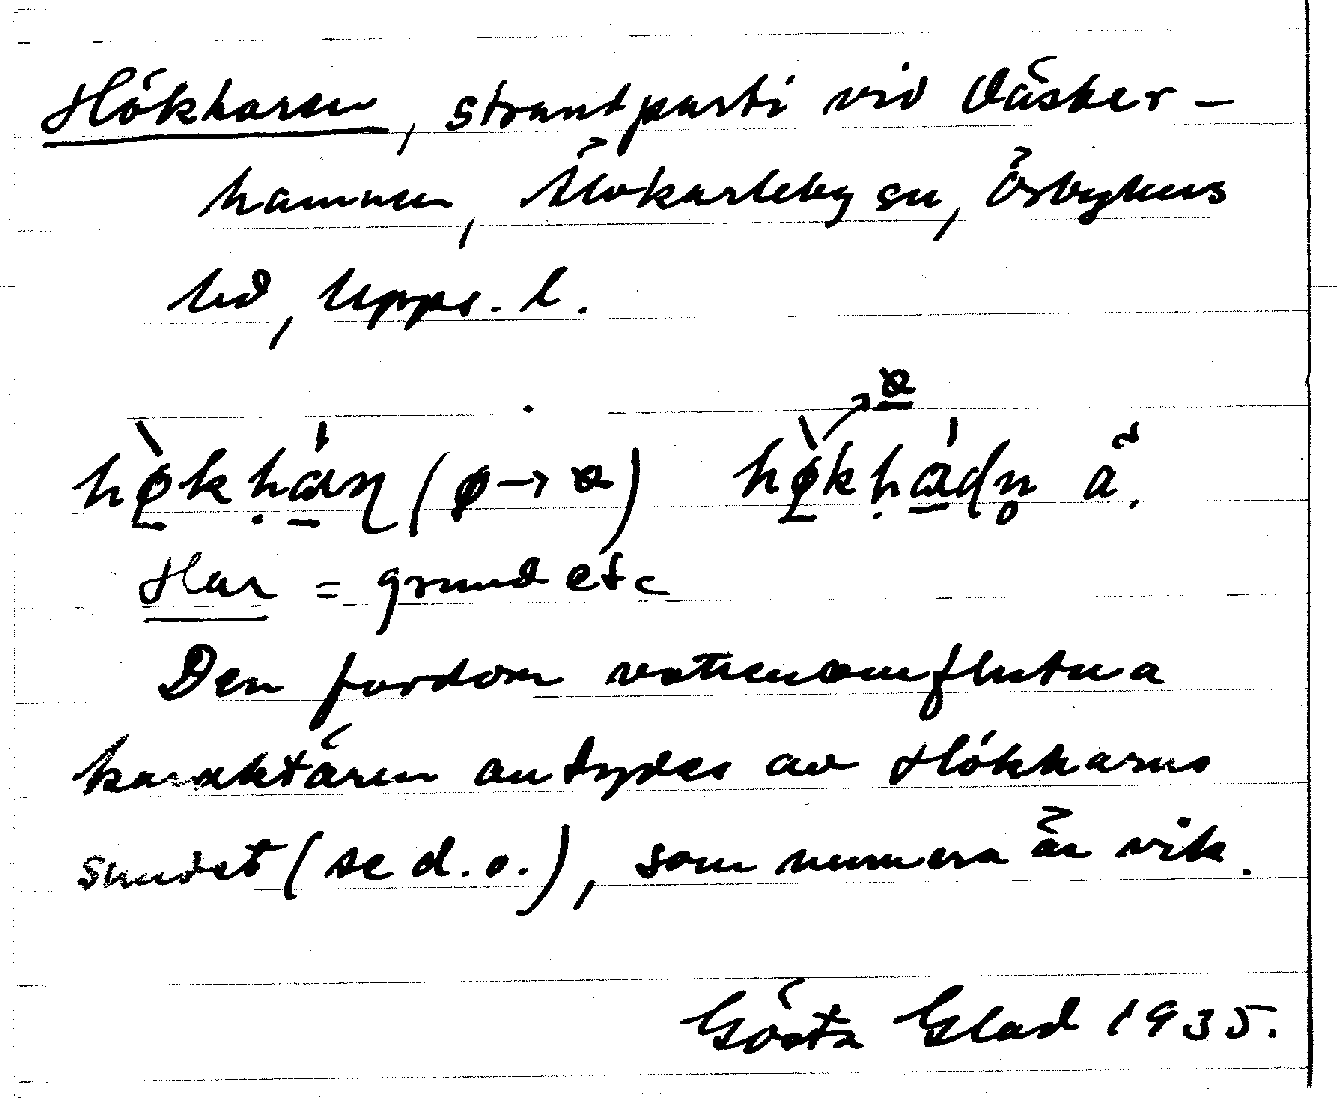 Hökharen, strandparti vid Väster-
hamnen, Älvkarleby sn, Örbyhus
hd, Upps. l.
hø̀kḥán (ø→ꭢ) hø̀kḥádn̥ å.
Har = grund etc
Den fordom vattenomflutna
karaktären antydes av Hökharns
sundet (se d.o.), som numera är vik.
Gösta Glad 1935.